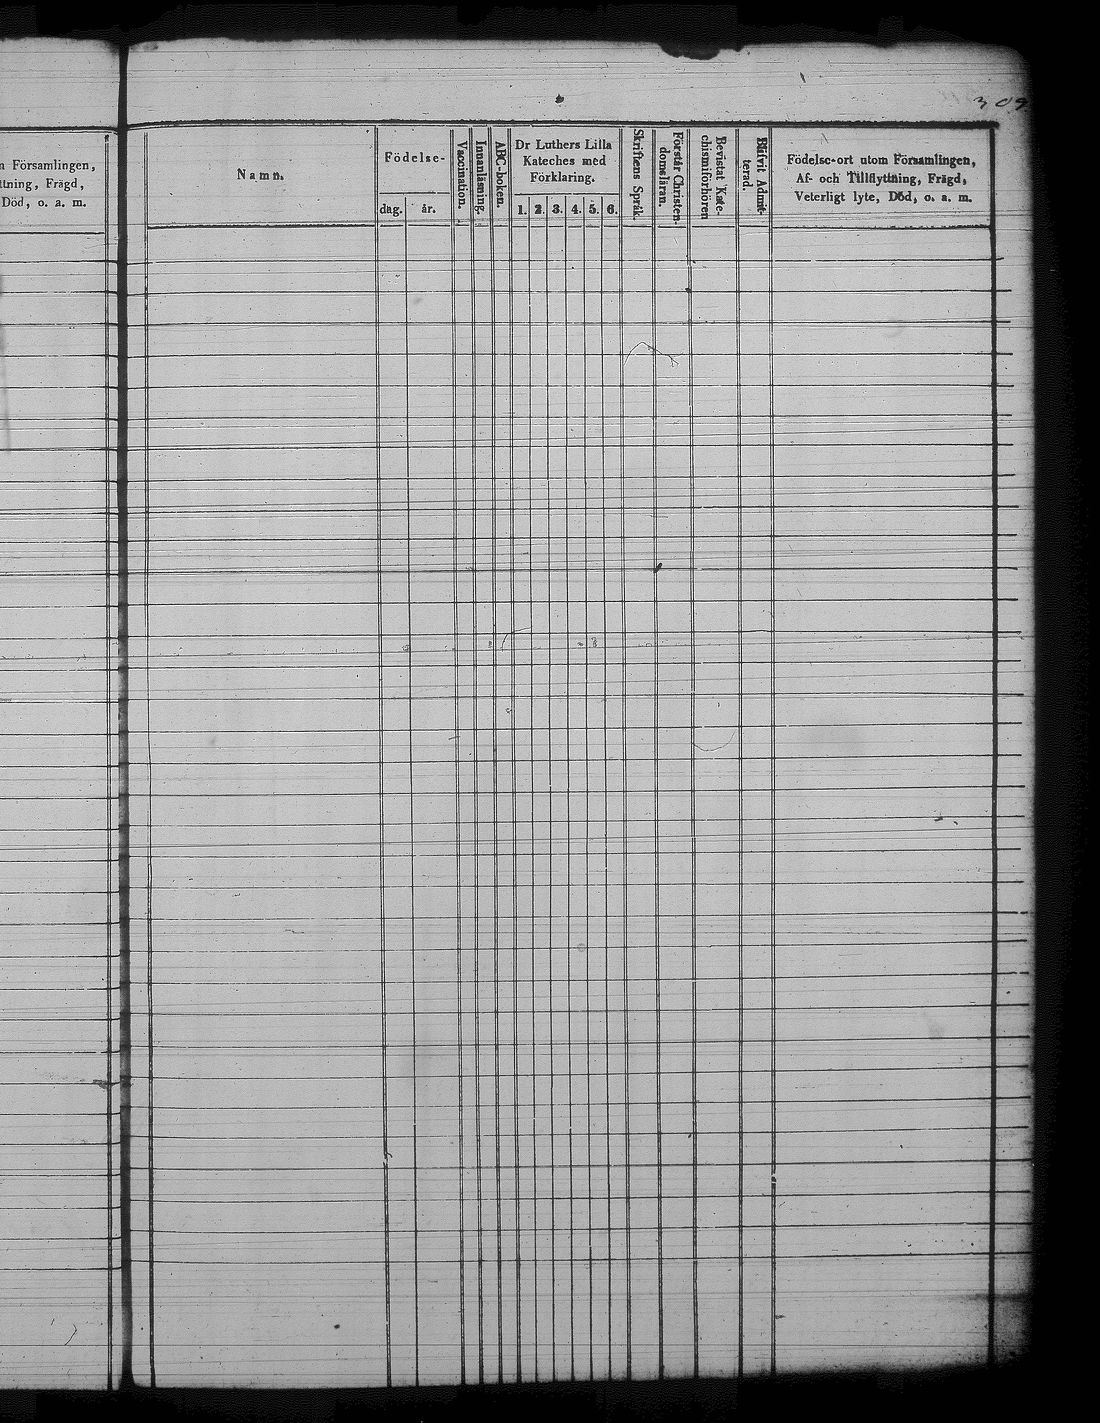 309
Församlingen,
ttning, Frägd,
Död, o. a. m.
Namn.
Födelse-
dag.
år.
Vaccination.
Innanläsning.
ABC-boken.
Dr Luthers Lilla
Kateches med
Förklaring.
1. 2. 3. 4. 5. 6.
Skriftens Språk.
Förstår Christen-
domsläran.
Bevistat Kate-
chismiförhören
Blifvit Admit-
terad.
Födelse-ort utom Församlingen,
Af- och Tillflyttning, Frägd,
Veterligt lyte, Död, o. a. m.